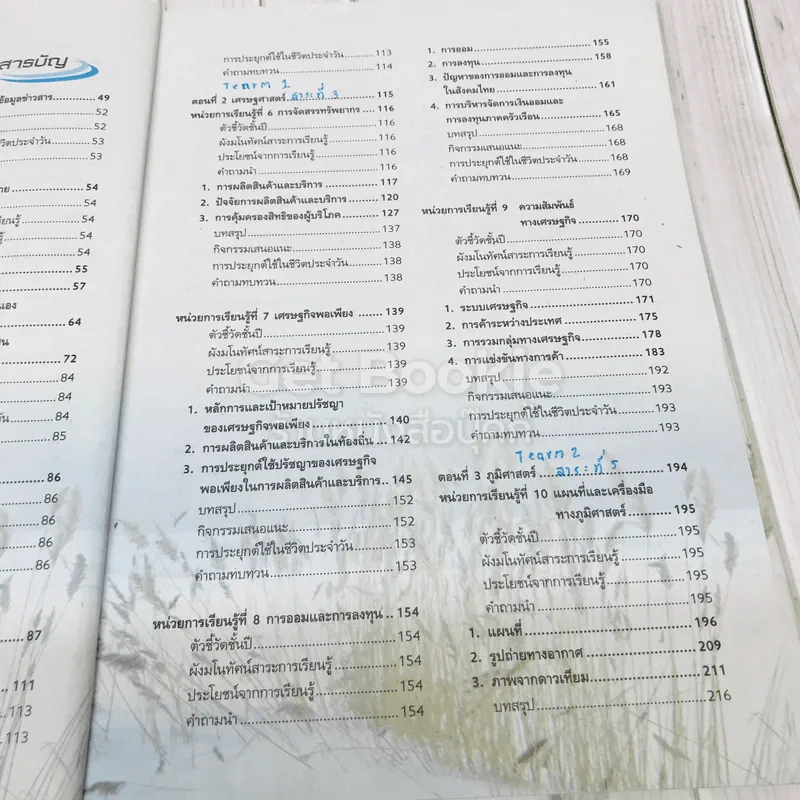 สารบัญ
ข้อมูลข่าวสาร..........49
52
52
ชีวิตประจำวัน....53
53
54
54
54
54
55
57
64
72
84
84
84
85
86
86
86
86
86
87
111
113
113
การประยุกต์ใช้ในชีวิตประจำวัน.......113
คำถามทบทวน..........114
Tearm 1
ตอนที่ 2 เศรษฐศาสตร์ สาระที่ 3 ..........115
หน่วยการเรียนรู้ที่ 6 การจัดสรรทรัพยากร ....116
ตัวชี้วัดชั้นปี..........116
ผังมโนทัศน์สาระการเรียนรู้..........116
ประโยชน์จากการเรียนรู้..........116
คำถามนำ..........116
1. การผลิตสินค้าและบริการ..........117
2. ปัจจัยการผลิตสินค้าและบริการ..........120
3. การคุ้มครองสิทธิของผู้บริโภค..........127
บทสรุป..........137
กิจกรรมเสนอแนะ..........138
การประยุกต์ใช้ในชีวิตประจำวัน..........138
คำถามทบทวน..........138
หน่วยการเรียนรู้ที่ 7 เศรษฐกิจพอเพียง..........139
ตัวชี้วัดชั้นปี..........139
ผังมโนทัศน์สาระการเรียนรู้..........139
ประโยชน์จากการเรียนรู้..........139
คำถามนำ..........139
1. หลักการและเป้าหมายปรัชญา
ของเศรษฐกิจพอเพียง..........140
2. การผลิตสินค้าและบริการในท้องถิ่น ..142
3. การประยุกต์ใช้ปรัชญาของเศรษฐกิจ
พอเพียงในการผลิตสินค้าและบริการ..145
บทสรุป..........152
กิจกรรมเสนอแนะ..........152
การประยุกต์ใช้ในชีวิตประจำวัน..........153
คำถามทบทวน..........153
หน่วยการเรียนรู้ที่ 8 การออมและการลงทุน ..154
ตัวชี้วัดชั้นปี..........154
ผังมโนทัศน์สาระการเรียนรู้..........154
ประโยชน์จากการเรียนรู้..........154
คำถามนำ..........154
1. การออม..........155
2. การลงทุน..........158
3. ปัญหาของการออมและการลงทุน
ในสังคมไทย..........161
4. การบริหารจัดการเงินออมและ
การลงทุนภาคครัวเรือน..........165
บทสรุป..........168
กิจกรรมเสนอแนะ..........168
การประยุกต์ใช้ในชีวิตประจำวัน..........168
คำถามทบทวน..........169
หน่วยการเรียนรู้ที่ 9 ความสัมพันธ์
ทางเศรษฐกิจ..........170
ตัวชี้วัดชั้นปี..........170
ผังมโนทัศน์สาระการเรียนรู้..........170
ประโยชน์จากการเรียนรู้..........170
คำถามนำ..........170
1. ระบบเศรษฐกิจ..........171
2. การค้าระหว่างประเทศ..........175
3. การรวมกลุ่มทางเศรษฐกิจ..........178
4. การแข่งขันทางการค้า..........183
บทสรุป..........192
กิจกรรมเสนอแนะ..........193
การประยุกต์ใช้ในชีวิตประจำวัน..........193
คำถามทบทวน..........193
Tearm 2
ตอนที่ 3 ภูมิศาสตร์ สาระที่ 5 ..........194
หน่วยการเรียนรู้ที่ 10 แผนที่และเครื่องมือ
ทางภูมิศาสตร์..........195
ตัวชี้วัดชั้นปี..........195
ผังมโนทัศน์สาระการเรียนรู้..........195
ประโยชน์จากการเรียนรู้..........195
คำถามนำ..........195
1. แผนที่..........196
2. รูปถ่ายทางอากาศ..........209
3. ภาพจากดาวเทียม..........211
บทสรุป..........216